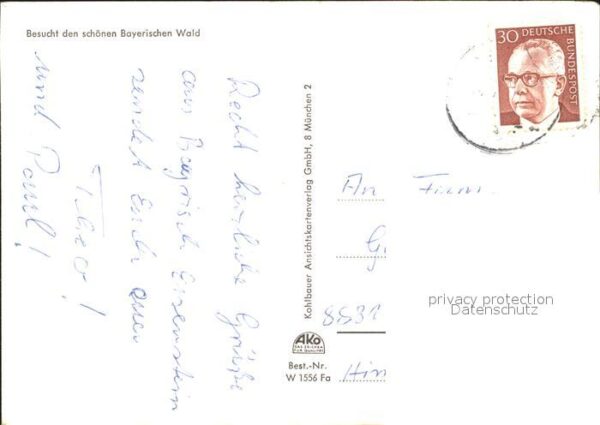 Besucht den schönen Bayerischen Wald
Recht herzliche Grüße
aus Bayrisch Eisenstein
sendet Euch euer
Theo!
und Paul!
Kohlbauer Ansichtskartenverlag GmbH, 8 München 2
AKO
DAS ZEICHEN
FÜR QUALITÄT
Best.-Nr.
W 1556 Fa
30 DEUTSCHE
BUNDESPOST
An Firm
G
8531
privacy protection
Datenschutz
Hin